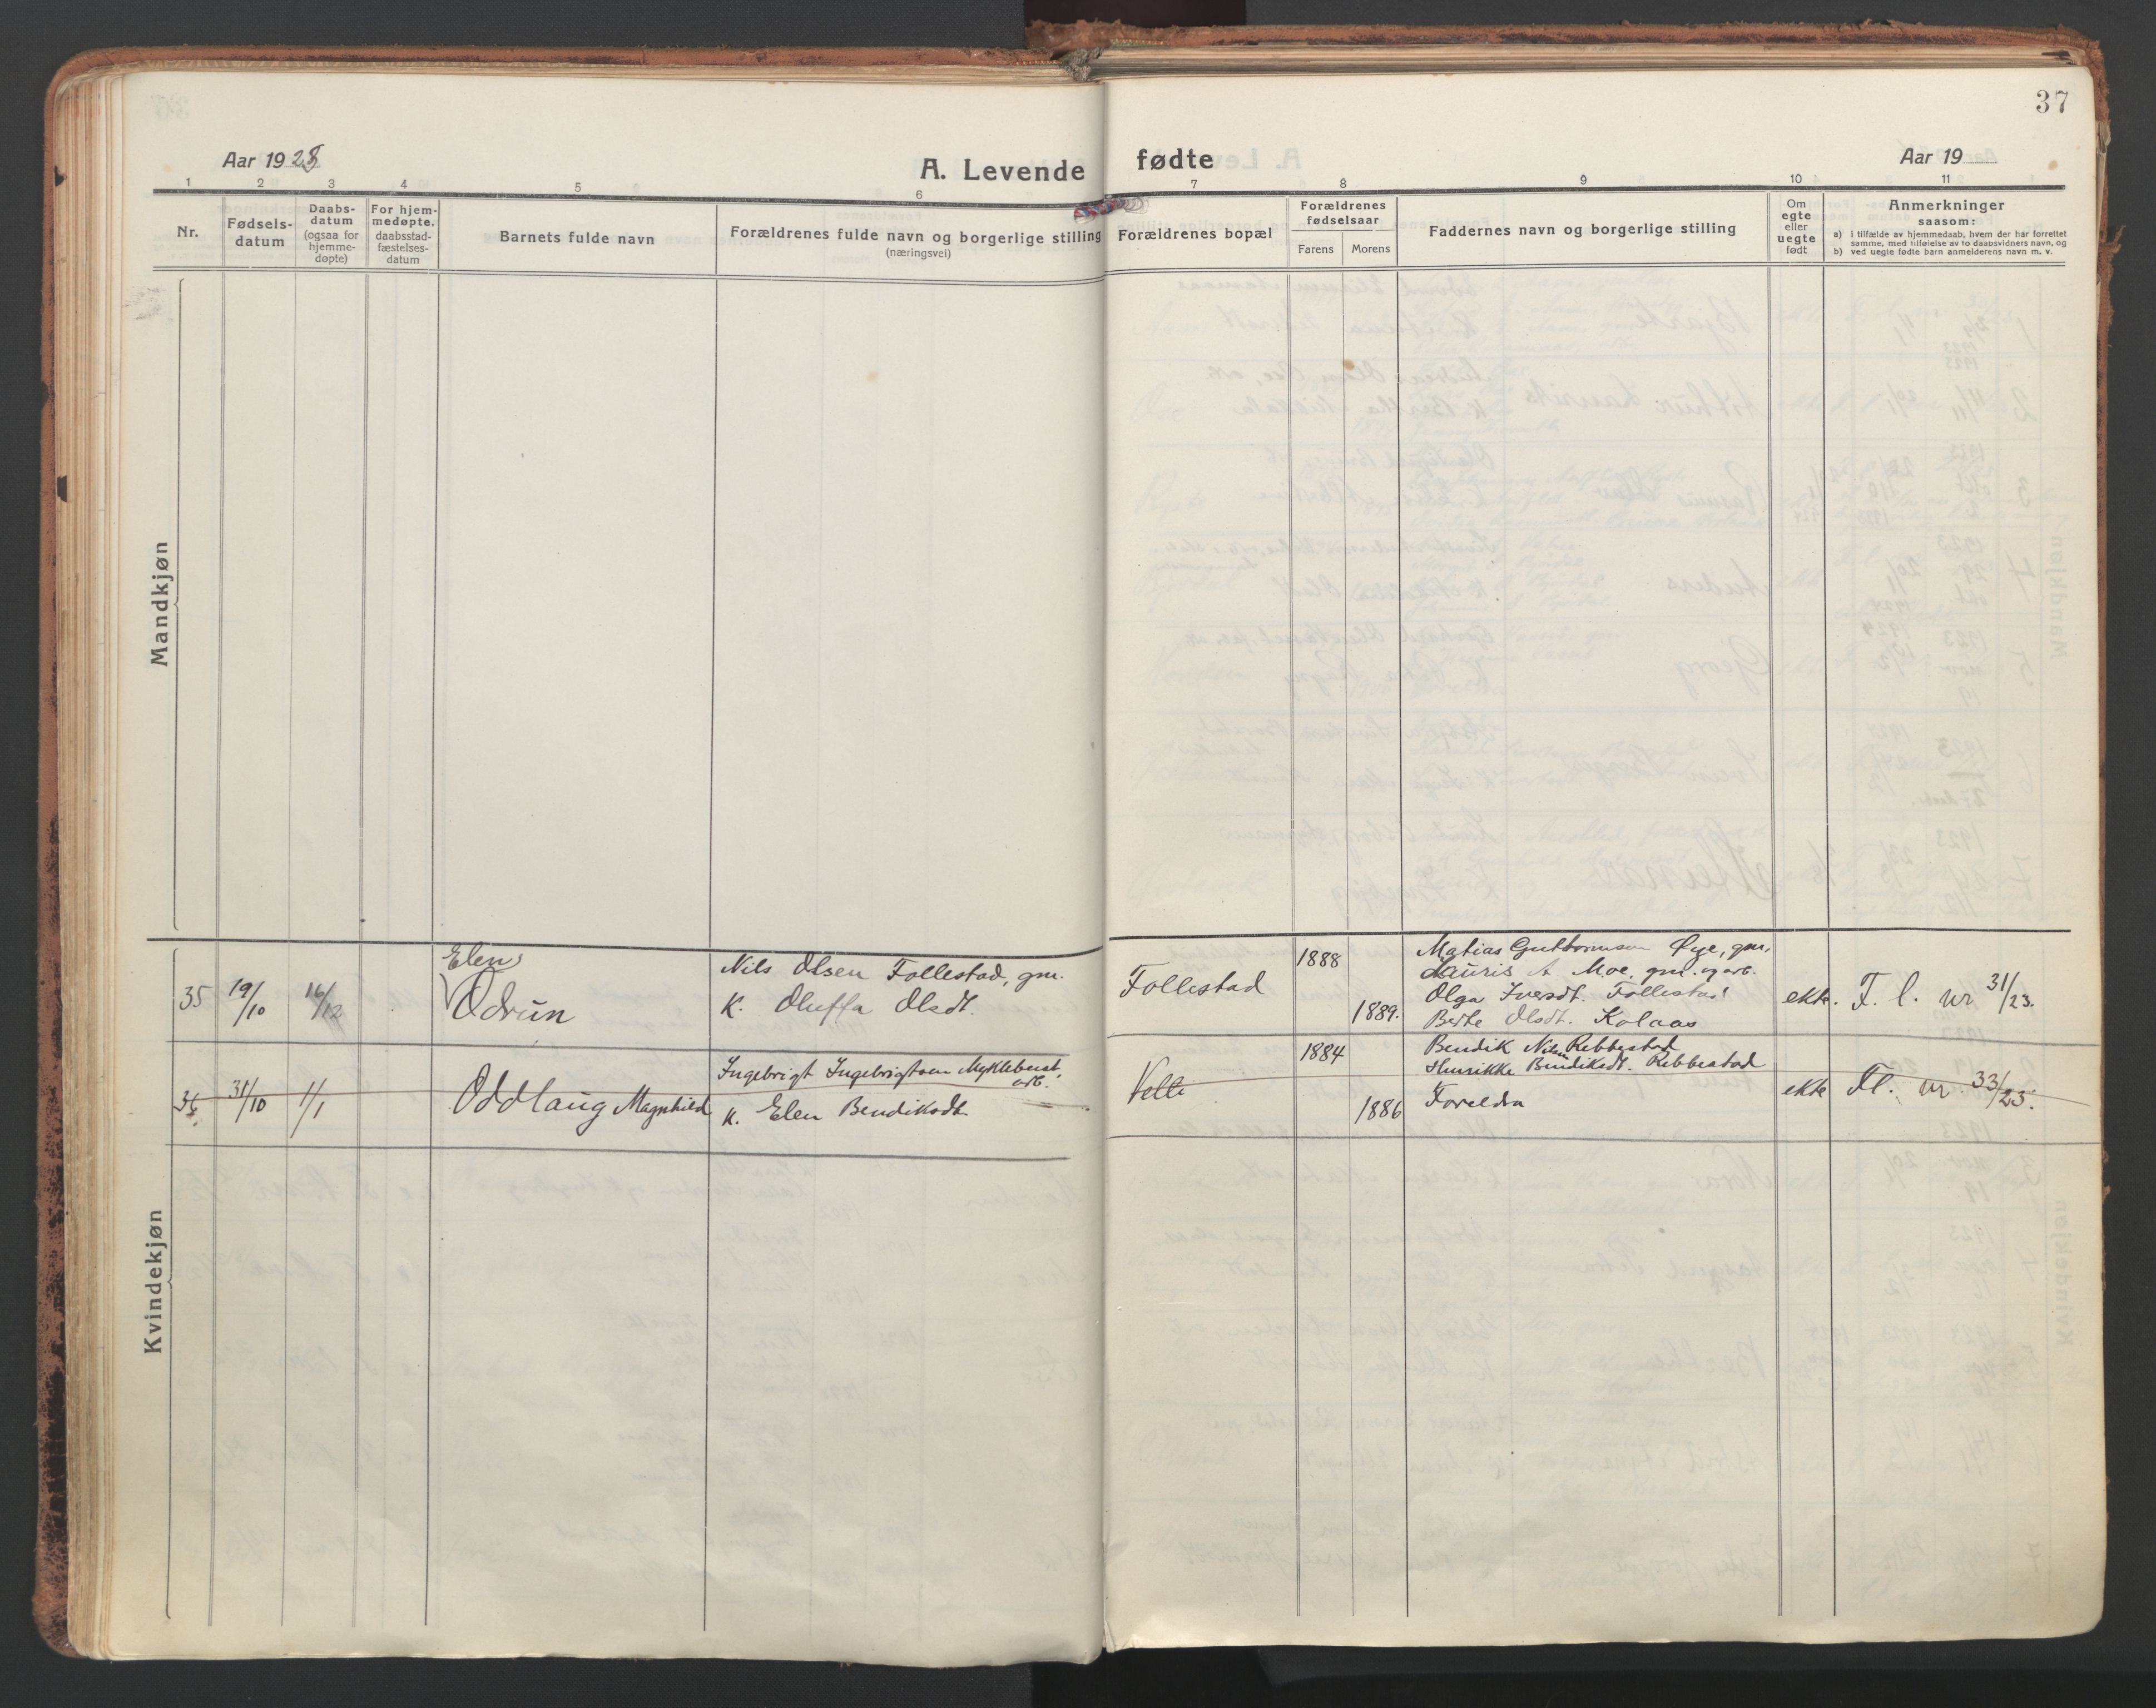 37
Aar 19
A. Levende fødte
Aar 19
1 2 3 4 5 6 7 8 9 10 11
Nr.
Fødsels-
datum
Daabs-
datum
(ogsaa for
hjemme-
døpte)
For hjem-
medøpte.
daabsstad-
fæstelses-
datum
Barnets fulde navn
Forældrenes fulde navn og borgerlige stilling
(næringsvei)
Forældrenes bopæl
Forældrenes
fødselsaar
Farens Morens
Faddernes navn og borgerlige stilling
Om
egte
eller
uegte
født
Anmerkninger
saasom:
a) i tilfælde av hjemmedaab, hvem der har forrettet
samme, med tilføielse av to daabsvidners navn, og
b) ved uegte fødte barn anmelderens navn m. v.
Mandkjøn
Kvindekjøn
35 19/10 16/12
Elen
Odrun
Nils Olsen Follestad, gm.
K. Oluffa Olsdt.
Follestad
1888
1889.
Matias Guttormsen Øye, gm.
Lauris A Moe, gm. og arb.
Olga Iversdt. Follestad
Berte Olsdt. Kolaas
ekte. F. l. nr 31/23.
36 31/10 1/1
Oddlaug Magnhild
Ingebrigt Ingebrigtsen Myklebust,
arb.
K. Elen Bendiksdt.
Velle
1884
1886
Bendik Nilsen Ribbestad
Henrikke Bendiksdt. Ribbestad
Foreldra
ekte Fl. nr 33/23.